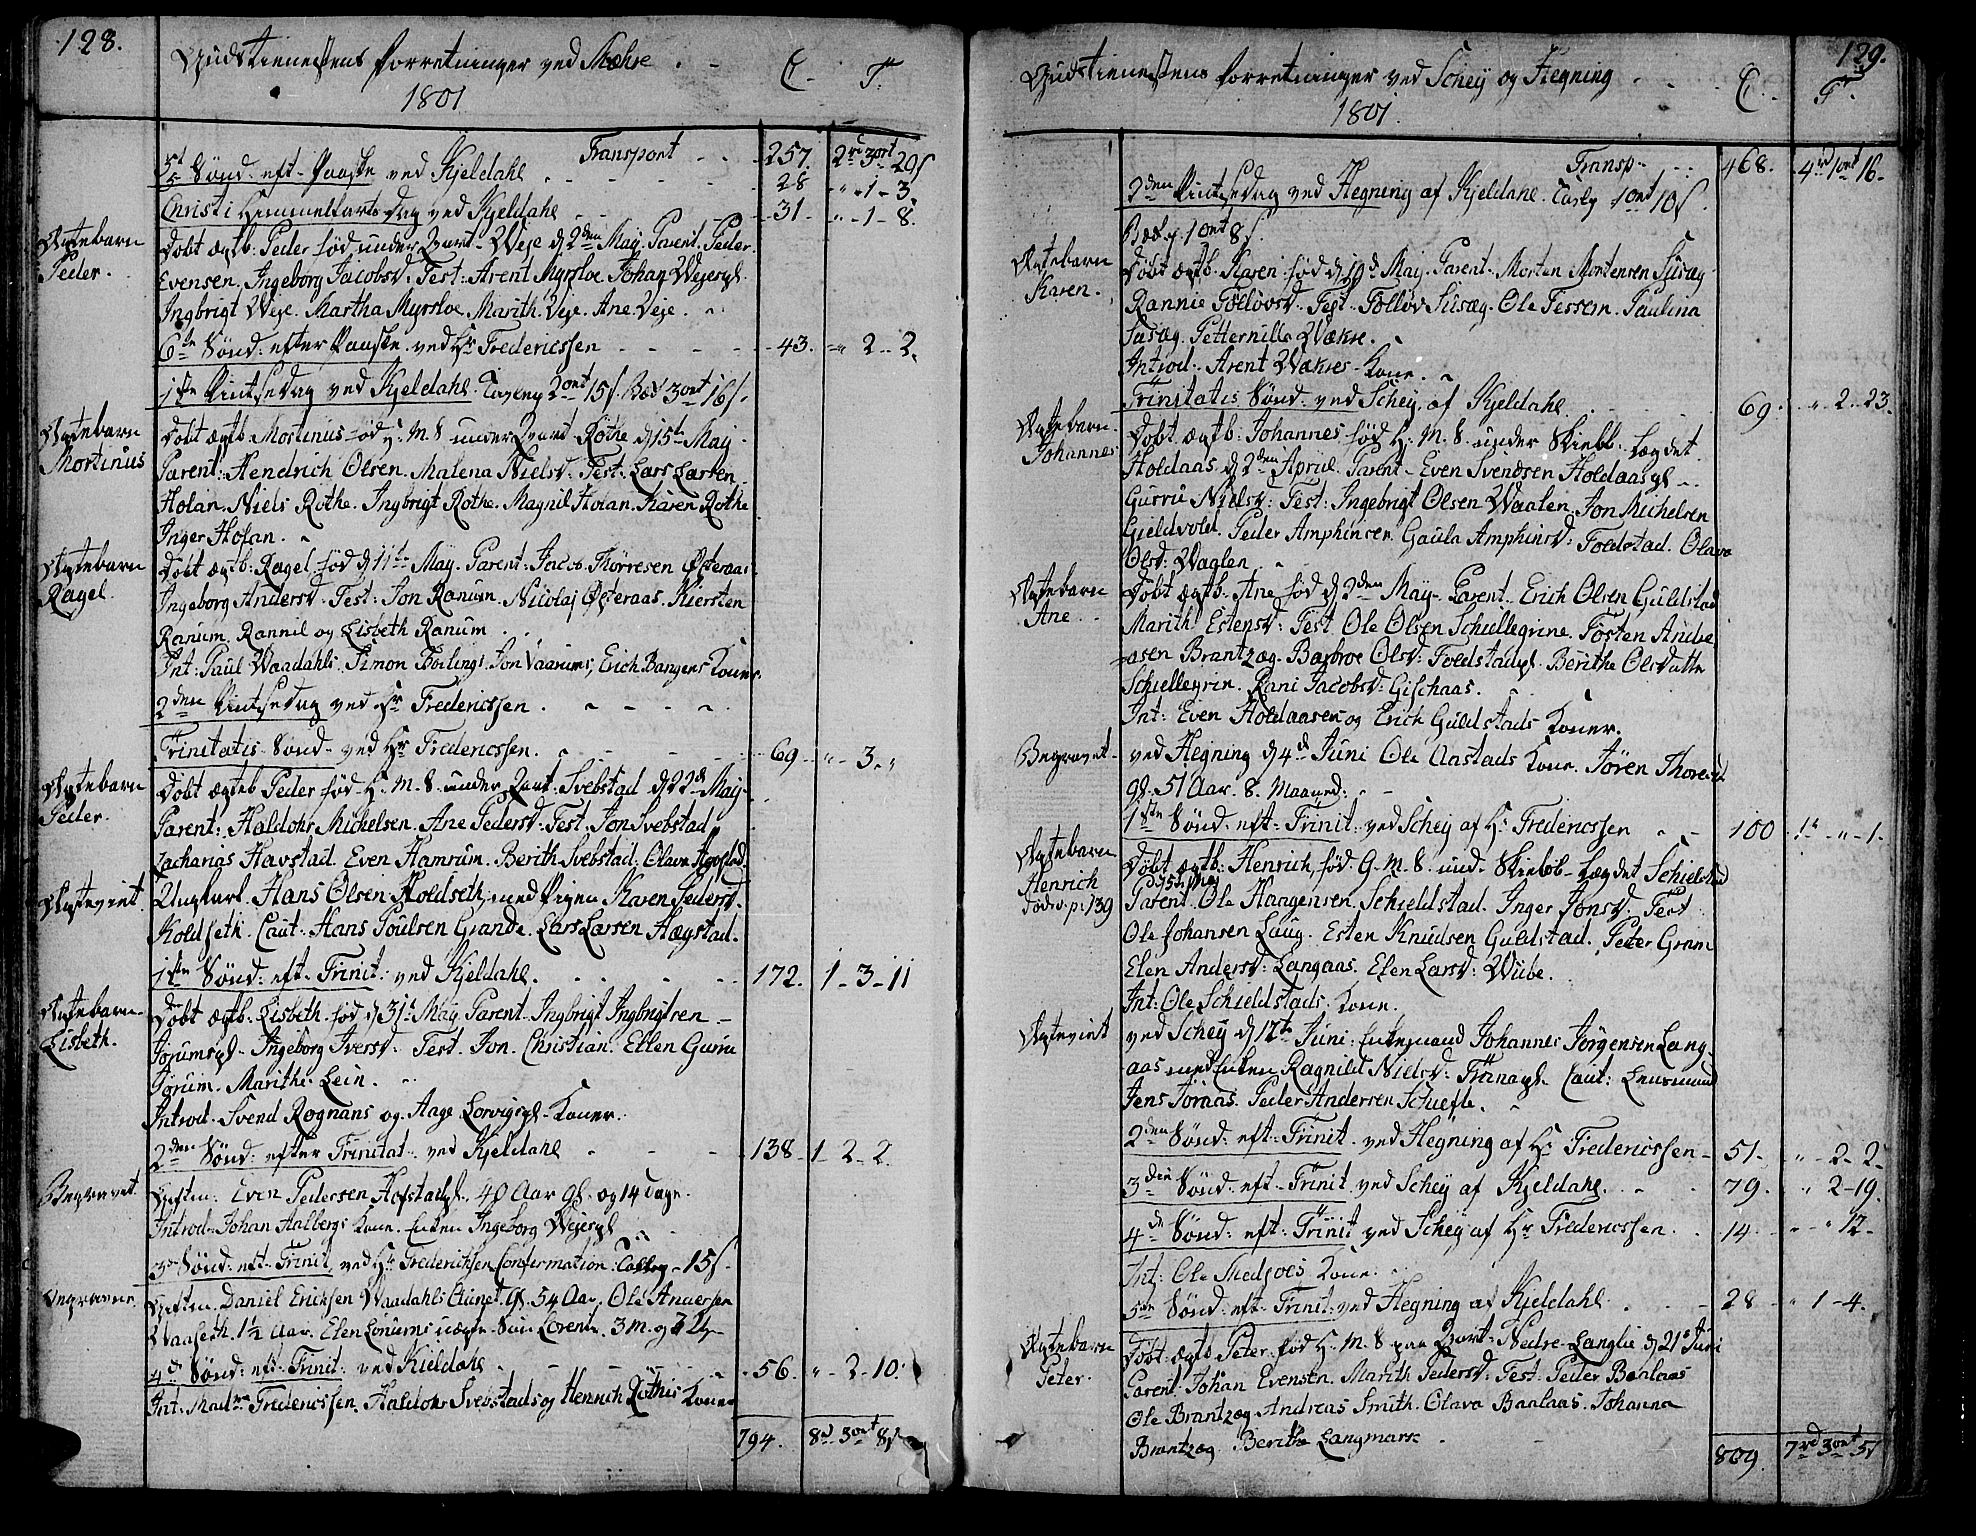 128.
Gudstienestens forretninger ved Mæhre
1801
C. T.
Transport 257. 2rd 3ort 20s
5t Sønd. eft. Paaske ved Kjeldahl 28 " - 1 - 3
Christi Himmelfarts Dag ved Kjeldahl 31. " - 1 - 8.
Ægtebarn
Peder.
Døbt ægtb. Peder født under Qvart. Weje d 2den May. Parent. Peder
Evensen. Ingeborg Jacobsd. Test: Arent Myrsloe. Johan Wejesgl.
Ingbrigt Weje. Martha Myrsloe. Marith Veje. Ane Veje.
6te Sønd: efter Paaske ved Hr Fredericssen 43. " 2 - 2.
1ste Pintsedag ved Kjeldahl. 2ort 15s. 3ort 16s.
Ægtebarn
Mortinus
Døbt ægtb Mortinus født H. M. S under Qvart Røthe d 15te May
Parent: Hendrich Olsen. Malena Nielsd: Test: Lars Larsen
Holan. Niels Røthe. Ingbrigt Røthe. Magnil Holan. Karen Røthe
Inger Holan.
Ægtebarn
Ragel.
Døbt ægtb: Ragel. fød d 11te May. Parent: Jacob Thørresen Østeraas
Ingeborg Andersd. Test: Jon Ranum. Nicolaj Østeraas. Kiersten
Ranum. Rannil og Lisbeth Ranum.
Int: Paul Waadahls. Simon Jon Vaarums, Erich Bangens Koner.
2den Pintsedag ved Hr Fredericssen.
Trinitatis Sønd. ved Hr Fredericssen. 69 " - 3. "
Ægtebarn
Peder.
Døbt ægteb Peder født H. M. S. under Qvart: Svebstad d 22d May
Parent: Haldohr Michelsen. Ane Pedersd: Test. Jon Svebstad
Zacharias Havstad. Even Hamrum. Berith Svebstad: Olava
Ægteviet
Ungkarl. Hans Olsen Holdseth, med Pigen Karen Pedersd.
Holdseth. Caut: Hans Poulsen Grande. Lars Larsen Hægstad.
1ste Sønd: eft. Trinit: ved Kjeldahl. 172. 1 - 3 - 11
Ægtebarn
Lisbeth.
Døbt ægtb: Lisbeth. fød d 31te May. Parent. Ingbrigt Ingbrigtsen
Jørumsgl. Ingeborg Iversd. Test. Jon. Christian. Ellen Guru
Jørum. Marithe Lein.
Introd. Svend Rognans og Aage Lorvigsgl. Koner.
2den Sønd: efter Trinitat. ved Kjeldahl 138 1 - 2 - 2.
Begravet.
Giften: Even Pedersen Hofstadgl. 40 Aar gl. og 14 dage.
Introd. Johan Aalbergs Kone. Enken Ingeborg Wejesgl
3die Sønd: eft. Trinit. ved Hr Fredericksen Confirmation: - 15s.
Begravne.
Giften. Daniel Ericksen Waadahls gl. 54 Aar. Ole Andersen
Waaseth. 1½ Aar. Elen uægte Søn Lorents. 3 m. og
4d Sønd: eft. Trinit: ved Kieldahl 56. " - 2 - 10.
Int. Madme Fredericssen. Haldohr Svebstads og Henrich Røthes Koner
794. 8rd 3ort 8s
129.
Gudstienestens forretninger ved Schey og Hegning
1801.
C. T.
Transp. 468. 4rd 1ort 16.
2den Pintsedag ved Hegning af Kjeldahl. 1ort 10s.
1ort 8s.
Ægtebarn
Karen.
Døbt ægtb. Karen. fød d 19d May. Parent. Morten Mortensen Susæg
Rannie Tollovsd. Test. Tollov Susæg. Ole Tessem. Paulina
Susæg. Petternille Wækre.
Introd. Arent Wækres Kone.
Trinitatis Sønd. ved Schey af Kjeldahl. 69. " - 2 - 23.
Ægtebarn
Johannes
Døbt ægtb: Johannes født H. M. S. under Skiebb. Lægdet
Holdaas d 2den Apriil. Parent. Even Svendsen Holdaasgl
Gurru Nielsd: Test: Ingebrigt Olsen Waalen. Jon Michelsen
Gieldvold. Peder Amphinsen. Gaula Amphinsd: Foldstad. Olava
Olsd: Waalen.
Ægtebarn
Ane.
Døbt ægtb. Ane fød d 2den May. Parent. Erich Olsen Guldstad
Marith Estensd: Test. Ole Olsen Schiellegrine. Tosten Andre
asen Brantzæg. Barbroe Olsd: Foldstadgl. Berithe Olsdatte
Schiellegrin. Rani Jacobsd: Gischaas.
Int: Even Holdaasen og Erich Guldstads Koner.
Begravet.
ved Hegning d 4de Juni Ole Aastads Kone. Jøren Thoresd
gl. 51 Aar. 8. Maaned:
1ste Sønd. eft. Trinit: ved Schey af Hr Fredericssen 100 1 - " - 1.
Ægtebarn
Henrich
p. 139
Døbt ægtb: Henrich. fød. H. M. S. und. Skiebb. Lægdet Schielstad
Parent. Ole Haagensen Schieldstad. Inger Jonsd. Test
Ole Johansen Laug. Esten Knudsen Guldstad. Peter Gram
Elen Andersd: Langaas. Elen Larsd: Wiibe.
Int: Ole Schieldstads Kone.
Ægteviet
ved Schey d 12te Juni: Enkemand Johannes Jørgensen Lang
aas med Enken Ragnild Nielsd: Frönæsgl. Caut: Lensmand
Jens Joraas. Peder Andersen Schiefte.
2den Sønd: eft. Trinit. ved Hegning af Hr Fredericssen 51. " - 2 - 2.
3die Sønd: eft. Trinit. ved Schey af Kjeldahl. 79. " 2 - 19.
4de Sønd: eft: Trinit ved Schey af Hr Fredericssen. 14 " - " 12.
Int: Ole Medjoes Kone.
5te Sønd: eft. Trinit: ved Hegning af Kjeldahl 28 " 1 - 4.
Ægtebarn
Peter.
Døbt ægtb Peter. fød H. M. S paa Qvart. Nedre Langlie d 21s Juni
Parent. Johan Evensen. Marith Pedersd: Test: Peder Banlaas
Ole Brantzæg Andreas Smith. Olava Banlaas. Johanna
Brantzæg. Berithe Langmarsk
809. 7rd 3ort 5s